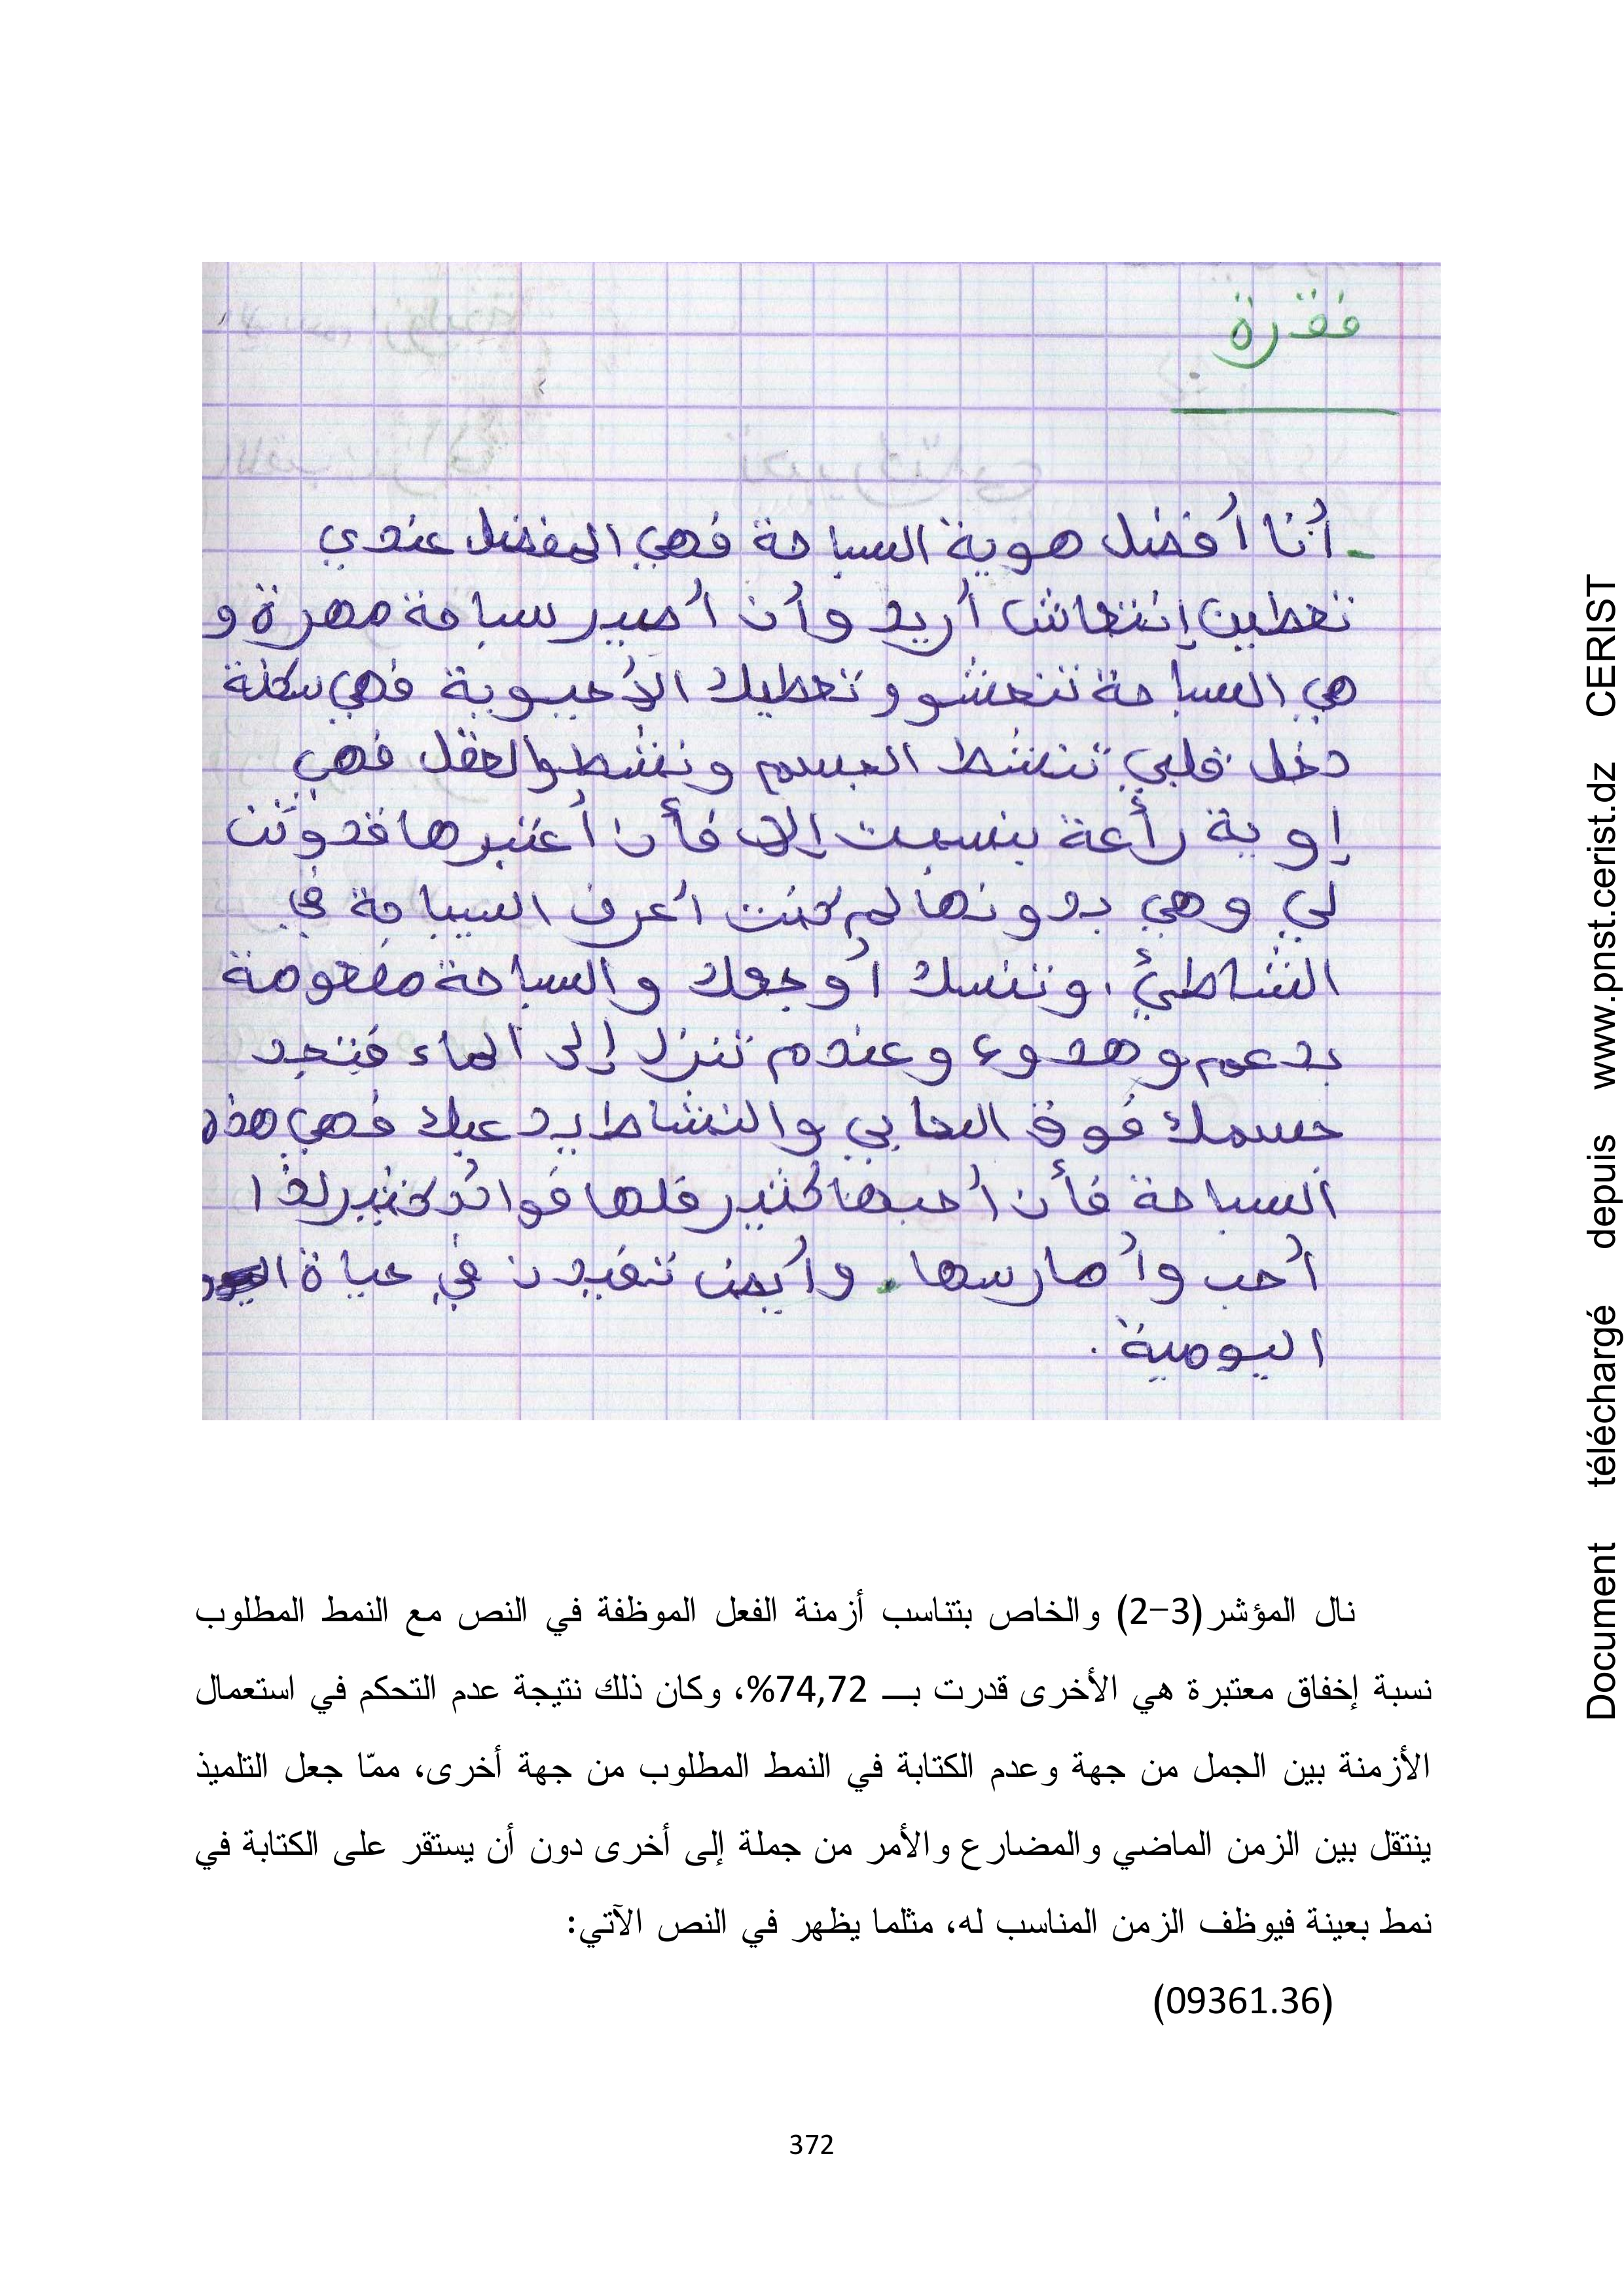 فقرة
- أنا أفضل هوية السباحة فهي المفضل عندي
تعطين إنتعاش أريد وأن أصير سباحة مهرة و
هي السباحة تنعشو و تعطيك الأحيوية فهي سكنة
دخل قلبي تنشط الجسم وتنشط والعقل فهي
إوية رأعة بنسبت إلي فأن أعتبرها قدوتن
لي وهي بدونها لم كنت أعرف السباحة في
الشاطئ، وتنسك أوجعك والسباحة مفعومة
بدعم وهدوء وعندم تنزل إلى الماء فتجد
جسمك فوق والنشاط يدعبك فهي هذه
السباحة فأن أحبها كثير فلها فوائد كثير لذا
أحب وأمارسها. وأيض تفيدن في حياة
اليومية.
نال المؤشر(3-2) والخاص بتناسب أزمنة الفعل الموظفة في النص مع النمط المطلوب
نسبة إخفاق معتبرة هي الأخرى قدرت بـــ 74,72%، وكان ذلك نتيجة عدم التحكم في استعمال
الأزمنة بين الجمل من جهة وعدم الكتابة في النمط المطلوب من جهة أخرى، ممّا جعل التلميذ
ينتقل بين الزمن الماضي والمضارع والأمر من جملة إلى أخرى دون أن يستقر على الكتابة في
نمط بعينة فيوظف الزمن المناسب له، مثلما يظهر في النص الآتي:
(09361.36)
372
Document téléchargé depuis www.pnst.cerist.dz CERIST